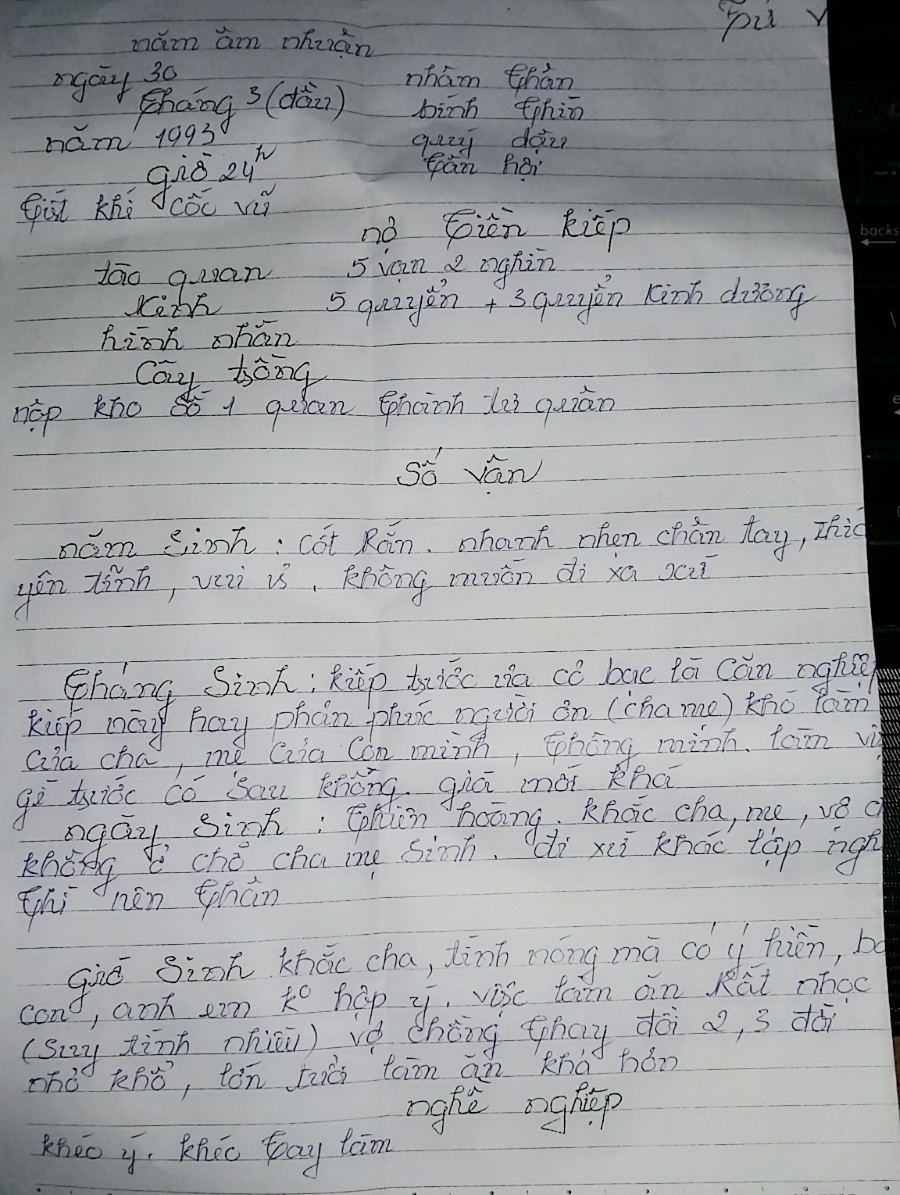 Tứ v
năm âm nhuận
ngày 30 nhâm thân
tháng 3 (đầu) bính thìn
năm 1993 quý dậu
giờ 24h tân hợi
tiết khí cốc vũ
nợ tiền kiếp
tào quan 5 vạn 2 nghìn
Kinh 5 quyển + 3 quyển kinh dương
hình nhân
Cây trồng
nộp kho số 1 quan thành lư quân
Số vận
năm sinh : cốt Rắn. nhanh nhẹn chân tay, thíc
yên tĩnh, vui vẻ. không muốn đi xa xứ
tháng sinh : kiếp trước vừa cờ bạc là căn nghiệ
kiếp này hay phản phúc người ơn (cha mẹ) khó làm
của cha, mẹ của con mình, thông minh. làm vi
gì trước có sau không. già mới khá
ngày sinh : thiên hoàng. khắc cha, mẹ, vợ c
không ở chỗ cha mẹ sinh. đi xứ khác lập ngh
thì nên thân
giờ sinh khắc cha, tính nóng mà có ý hiền, bo
con, anh em ko hợp ý. việc làm ăn Rất nhọc
(suy tính nhiều) vợ chồng thay đổi 2, 3 đời
nhỏ khổ, lớn tuổi làm ăn khá hơn
nghề nghiệp
khéo ý. khéo tay làm